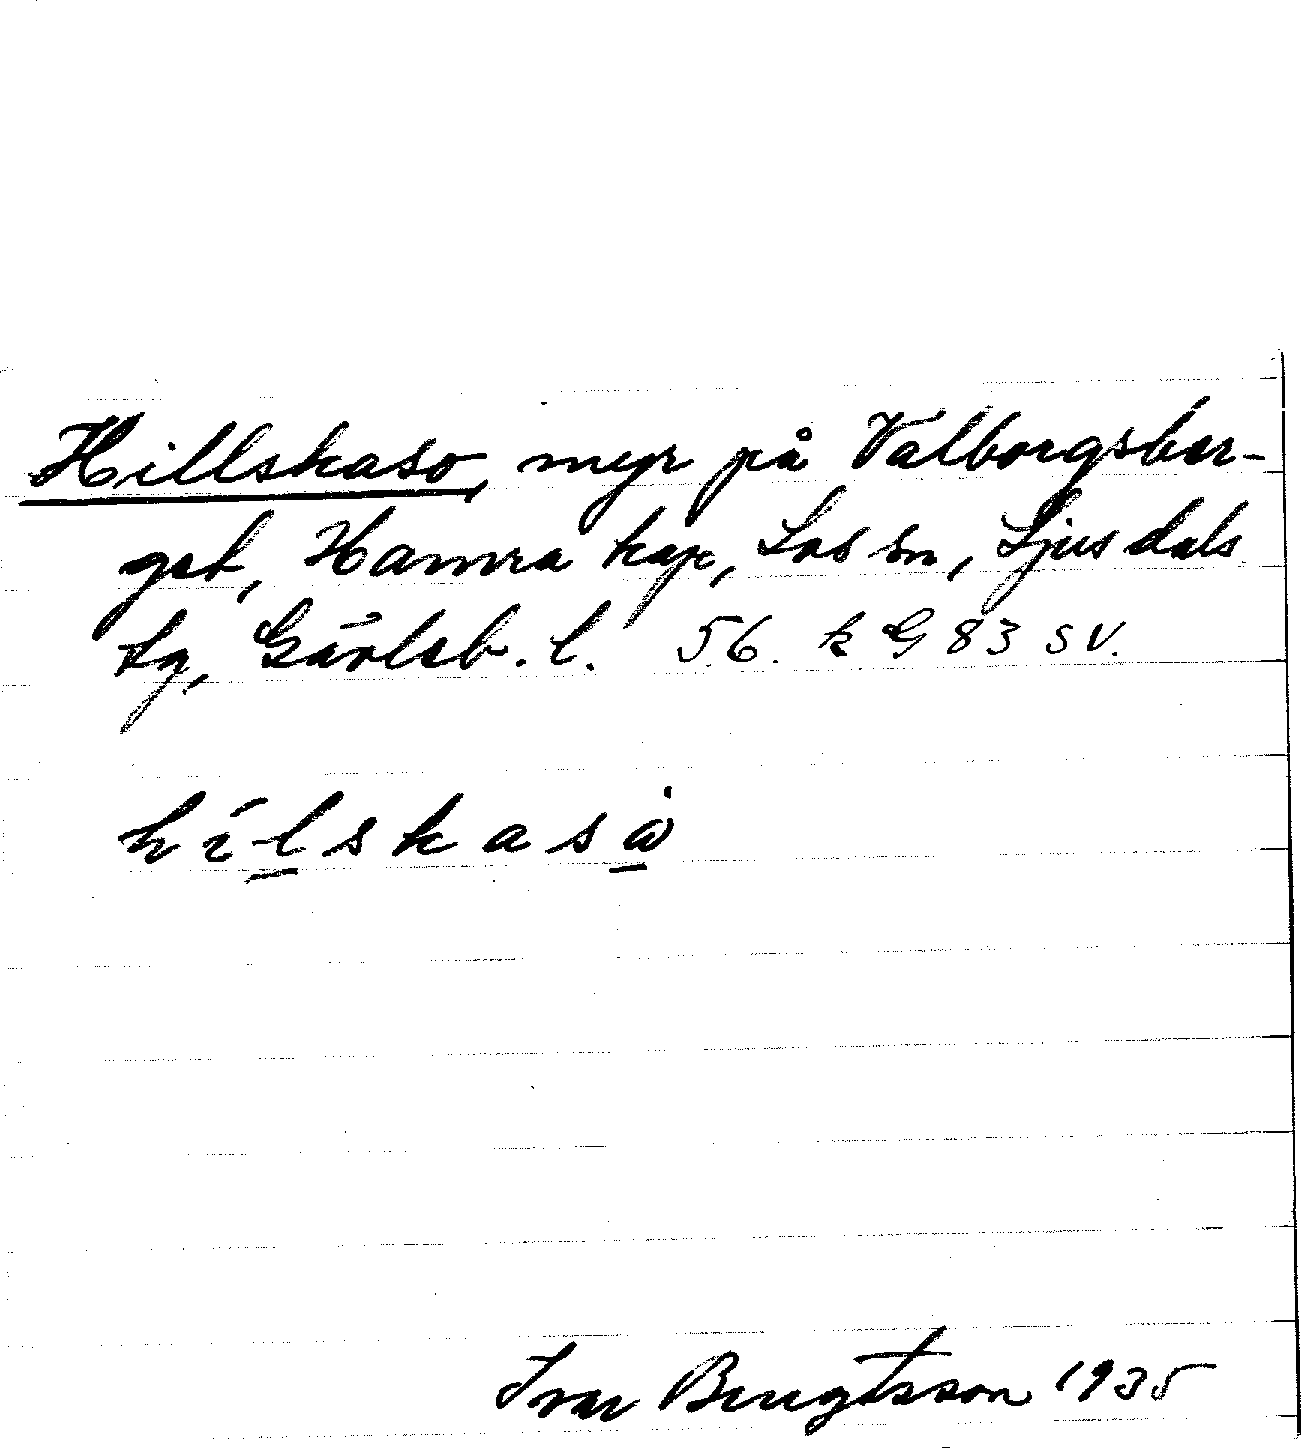 Hillskaso, myr på Valborgsber-
get, Hamra kap, Los sn, Ljusdals
tg, Gävleb. l. 56. k G 83 SV.
hilskaså
Ivar Bengtsson 1935